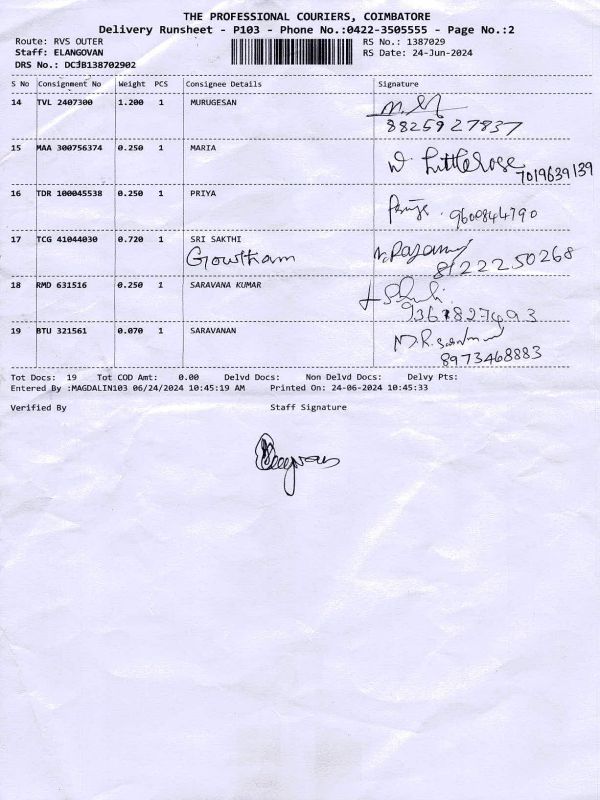 THE PROFESSIONAL COURIERS, COIMBATORE
Delivery Runsheet - P103 - Phone No.:0422-3505555 - Page No.:2
Route: RVS OUTER RS No.: 1387029
Staff: ELANGOVAN RS Date: 24-Jun-2024
DRS No.: DCJB138702902
S No Consignment No Weight PCS Consignee Details Signature
14 TVL 2407300 1.200 1 MURUGESAN
8825927837
15 MAA 300756374 0.250 1 MARIA
W. Littlerose
7019639139
16 TDR 100045538 0.250 1 PRIYA
9600844790
17 TCG 41044030 0.720 1 SRI SAKTHI
Gowtham
8122250268
18 RMD 631516 0.250 1 SARAVANA KUMAR
9361827493
19 BTU 321561 0.070 1 SARAVANAN
8973468883
Tot Docs: 19 Tot COD Amt: 0.00 Delvd Docs: Non Delvd Docs: Delvy Pts:
Entered By :MAGDALIN103 06/24/2024 10:45:19 AM Printed On: 24-06-2024 10:45:33
Verified By Staff Signature